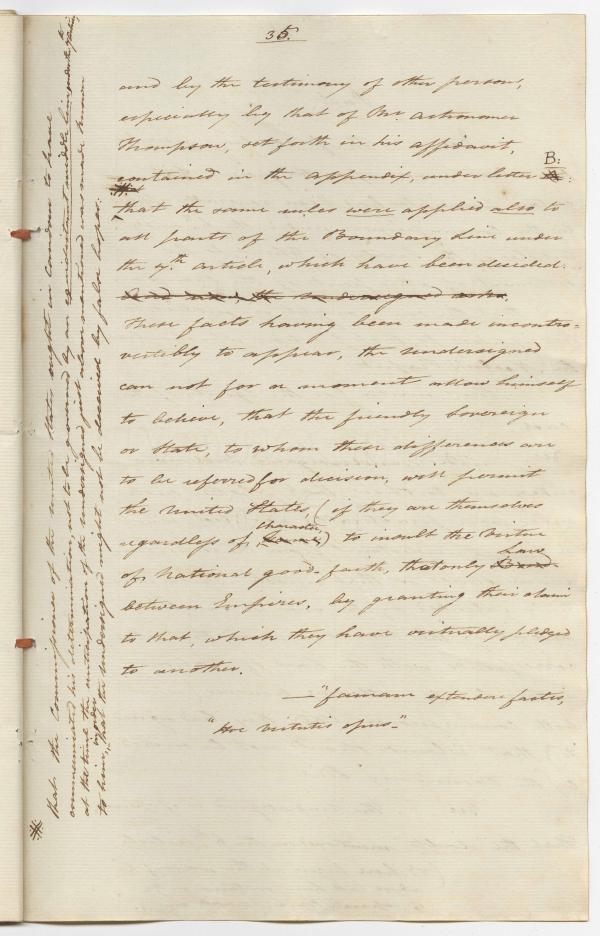 35.
and by the testimony of other persons,
especially by that of Mr Astronomer
Thompson, set forth in his affidavit,
contained in the appendix, under letter B:
that the same rules were applied also to
all parts of the Boundary Line under
the 7th article, which have been decided.
These facts having been made incontro-
vertibly to appear, the undersigned
can not for a moment allow himself
to believe, that the friendly Sovereign
or State, to whom these differences are
to be referred for decision, will permit
the United States, (if they are themselves
regardless of character,) to insult the virtue
of national good faith, that only Law
between Empires, by granting their claim
to that, which they have virtually pledged
to another.
—"famam extendere factis,
"Hoc virtutis opus—"
that the Commissioner of the United States might in candour to have
communicated his determination, not to be governed by an equidistant middle line
at the time the anticipation of the undersigned just above mentioned was made known
to him, in order that the undersigned might not be deceived by false hopes.